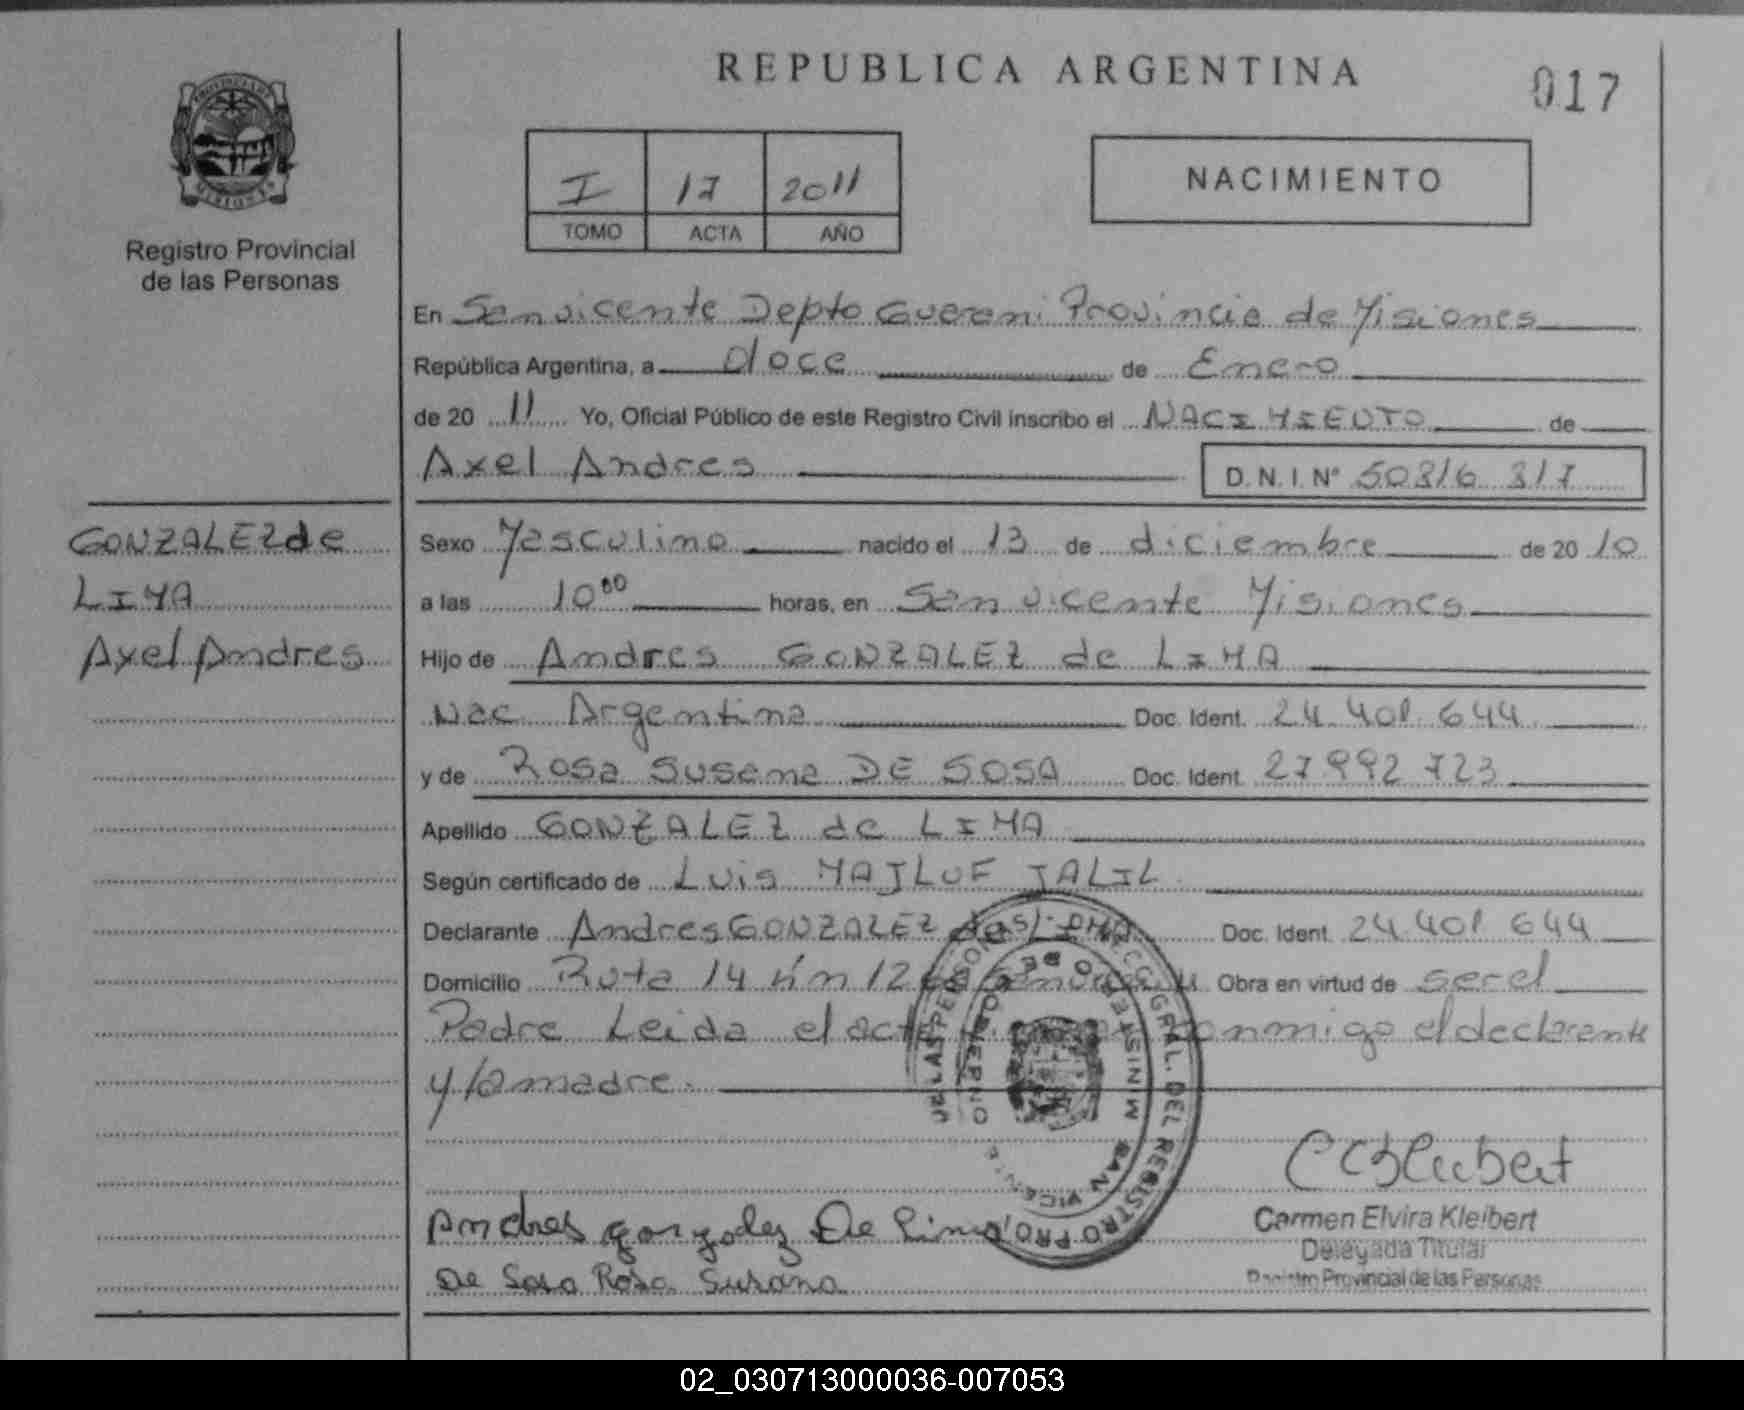 REPUBLICA ARGENTINA
017
PROVINCIA DE
MISIONES
Registro Provincial
de las Personas
I 17 2011
TOMO ACTA AÑO
NACIMIENTO
En San vicente Depto Guarani Provincia de Misiones
República Argentina, a doce de Enero
de 20 11 Yo, Oficial Público de este Registro Civil inscribo el NACIMIENTO de
Axel Andres D.N.I. N° 50316 317
GONZALEZ de
LIMA
Axel Andres
Sexo Masculino nacido el 13 de diciembre de 20 10
a las 10 00 horas, en San vicente Misiones
Hijo de Andres GONZALEZ de LIMA
Nac Argentina Doc. Ident. 24.401.644
y de Rosa Susana DE SOSA Doc. Ident. 27992723
Apellido GONZALEZ de LIMA
Según certificado de Luis MAJLUF JALIL
Declarante Andres GONZALEZ de LIMA Doc. Ident. 24.401.644
Domicilio Ruta 14 Km 12 Obra en virtud de ser el
Padre Leida el acta conmigo el declarante
y la madre.
DIRECC. GRAL. DEL REGISTRO PROV. DE LAS PERSONAS
MINISTERIO DE GOBIERNO
SAN VICENTE
Andres gonzalez De Lima
De Sosa Rosa Susana
Carmen Elvira Kleibert
Delegada Titular
Registro Provincial de las Personas
02_030713000036-007053